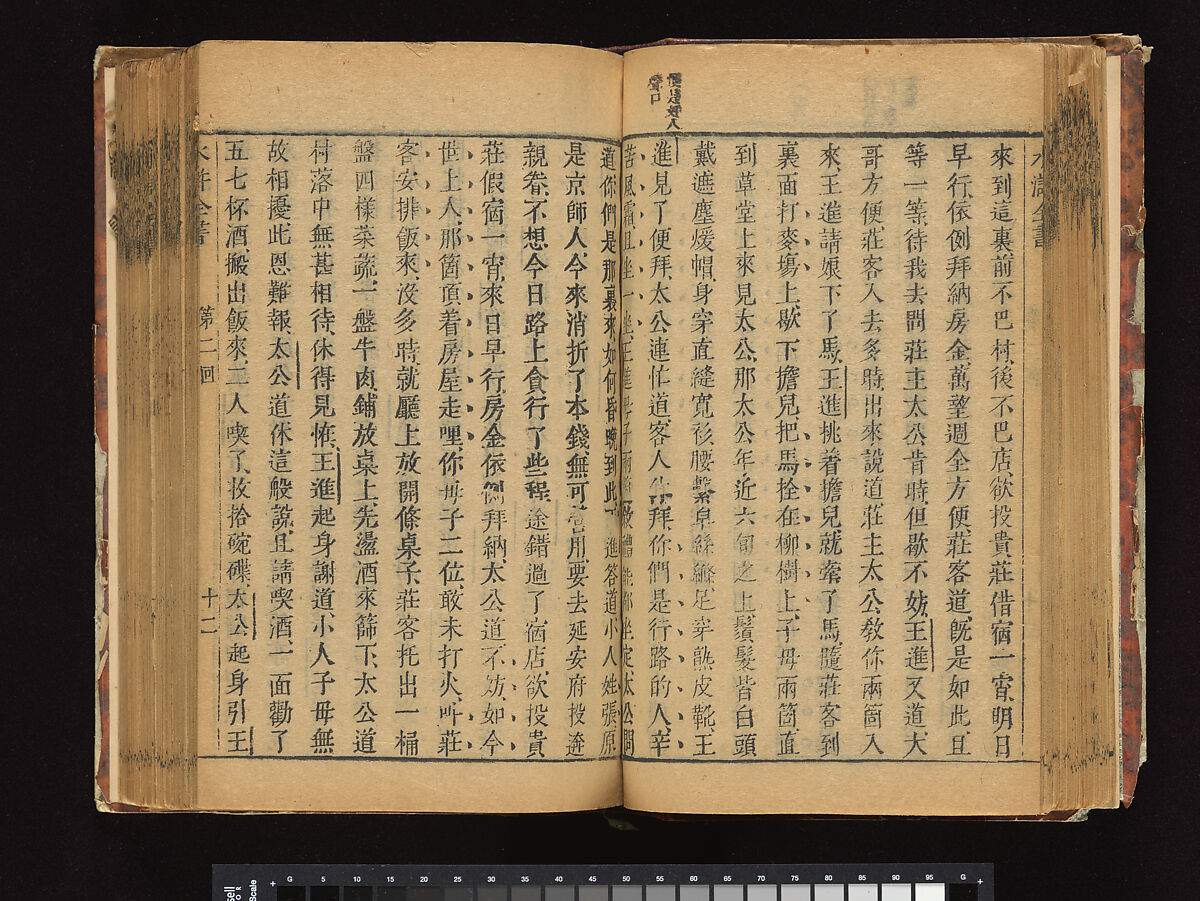 水滸全書
便是好人
聲口
來到這裏前不巴村後不巴店欲投貴莊借宿一宵明日
早行依例拜納房金萬望週全方便莊客道既是如此且
等一等待我去問莊主太公肯時但歇不妨王進又道大
哥方便莊客入去多時出來說道莊主太公教你兩箇入
來王進請娘下了馬王進挑着擔兒就牽了馬隨莊客到
裏面打麥場上歇下擔兒把馬拴在柳樹上子母兩箇直
到草堂上來見太公那太公年近六旬之上鬚髮皆白頭
戴遮塵煖帽身穿直縫寬衫腰繫皁絲縧足穿熟皮靴王
進見了便拜太公連忙道客人休拜你們是行路的人辛
苦風霜且坐一坐王進母子兩敘禮坐定太公問
道你們是那裏來如何昏晚到此進答道小人姓張原
是京師人今來消折了本錢無可營用要去延安府投逩
親眷不想今日路上貪行了些程途錯過了宿店欲投貴
莊假宿一宵來日早行房金依例拜納太公道不妨如今
世上人那箇頂着房屋走哩你母子二位敢未打火呌莊
客安排飯來沒多時就廳上放開條桌子莊客托出一桶
盤四樣菜蔬一盤牛肉鋪放桌上先盪酒來篩下太公道
村落中無甚相待休得見恠王進起身謝道小人子母無
故相擾此恩難報太公道休這般說且請喫酒一面勸了
五七杯酒搬出飯來二人喫了收拾碗碟太公起身引王
水滸全書 第二回 十二